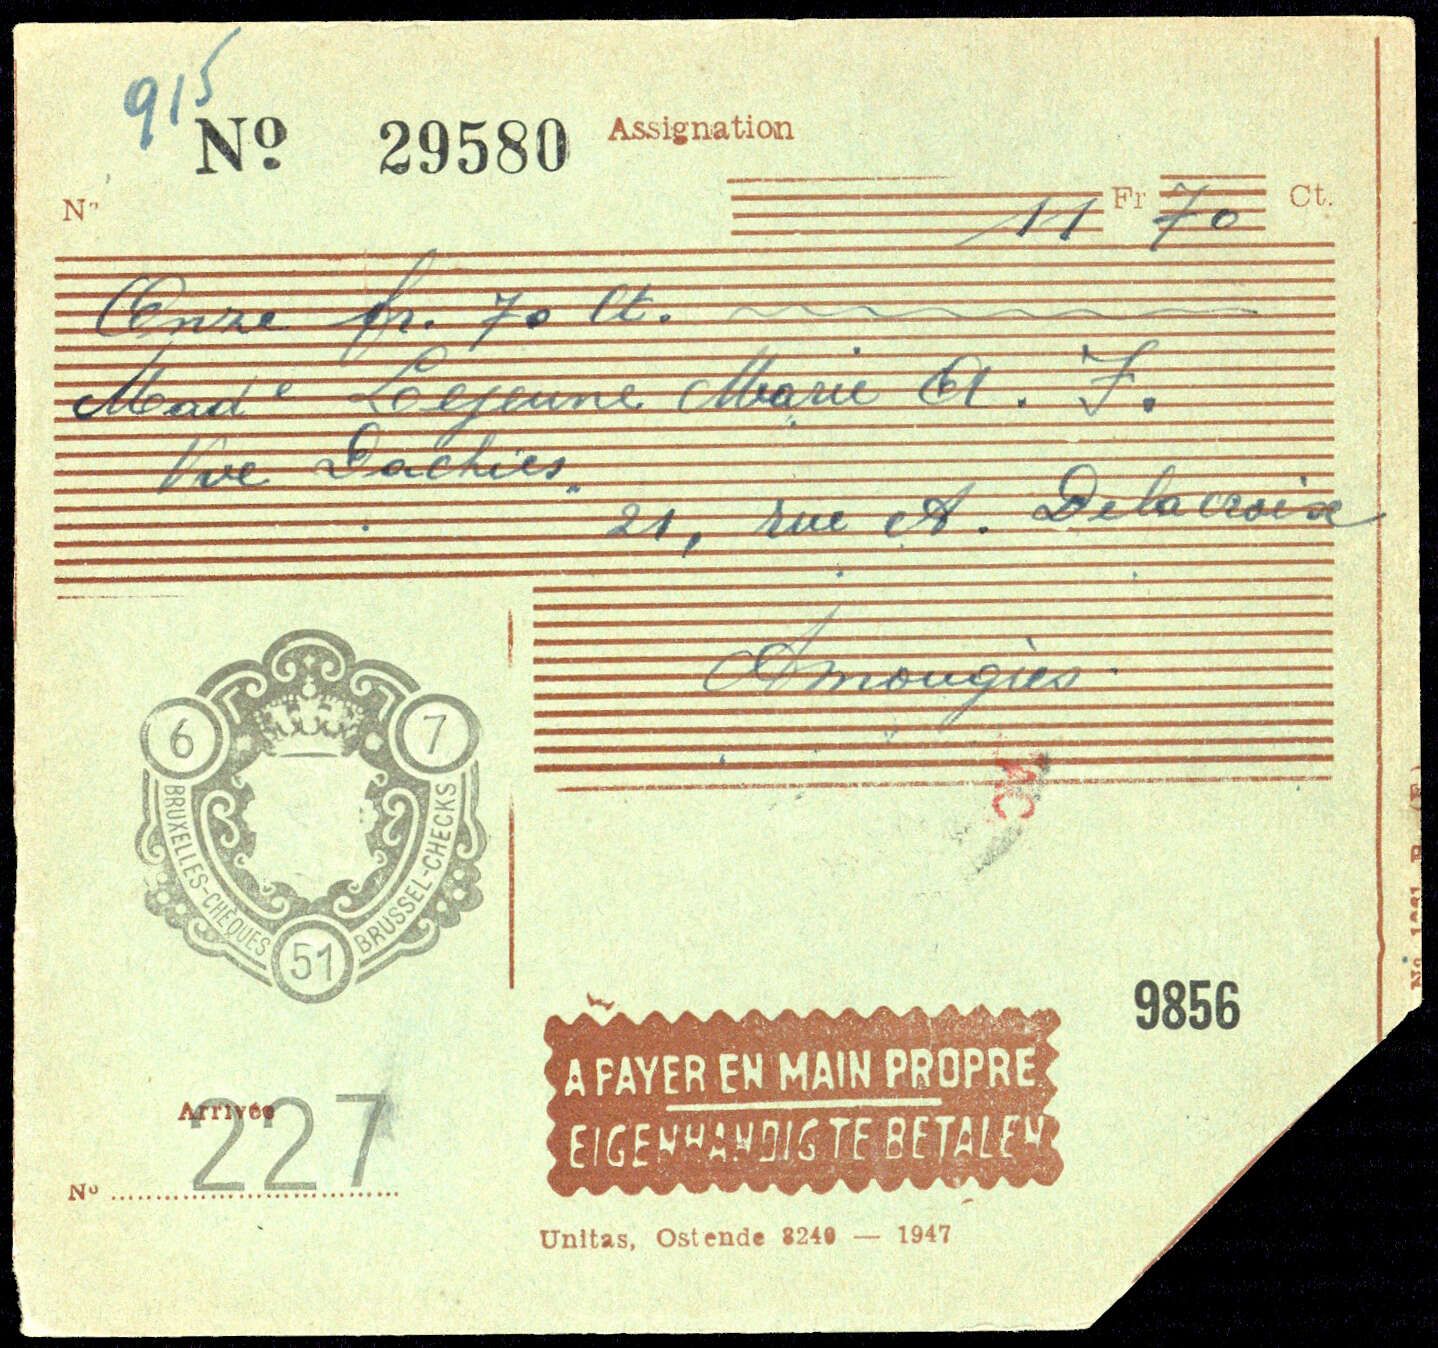 915
Nº 29580 Assignation
Nº 11 Fr 70 Ct.
Onze fr. 70 Ct.
Made Lejeune Marie A. F.
Vve Dachies
21, rue A. Delacroix
Amougies
6 7
BRUXELLES-CHÈQUES BRUSSEL-CHECKS
51
9856
A PAYER EN MAIN PROPRE
EIGENHANDIG TE BETALEN
Arrivée
Nº 227
Unitas, Ostende 8240 — 1947